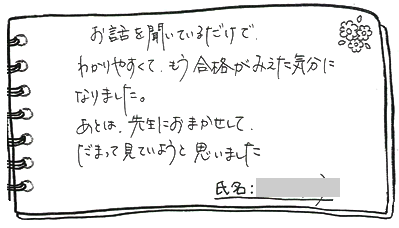 お話を聞いているだけで、
わかりやすくて、もう合格がみえた気分に
なりました。
あとは、先生におまかせして、
だまって見ていようと思いました
氏名: